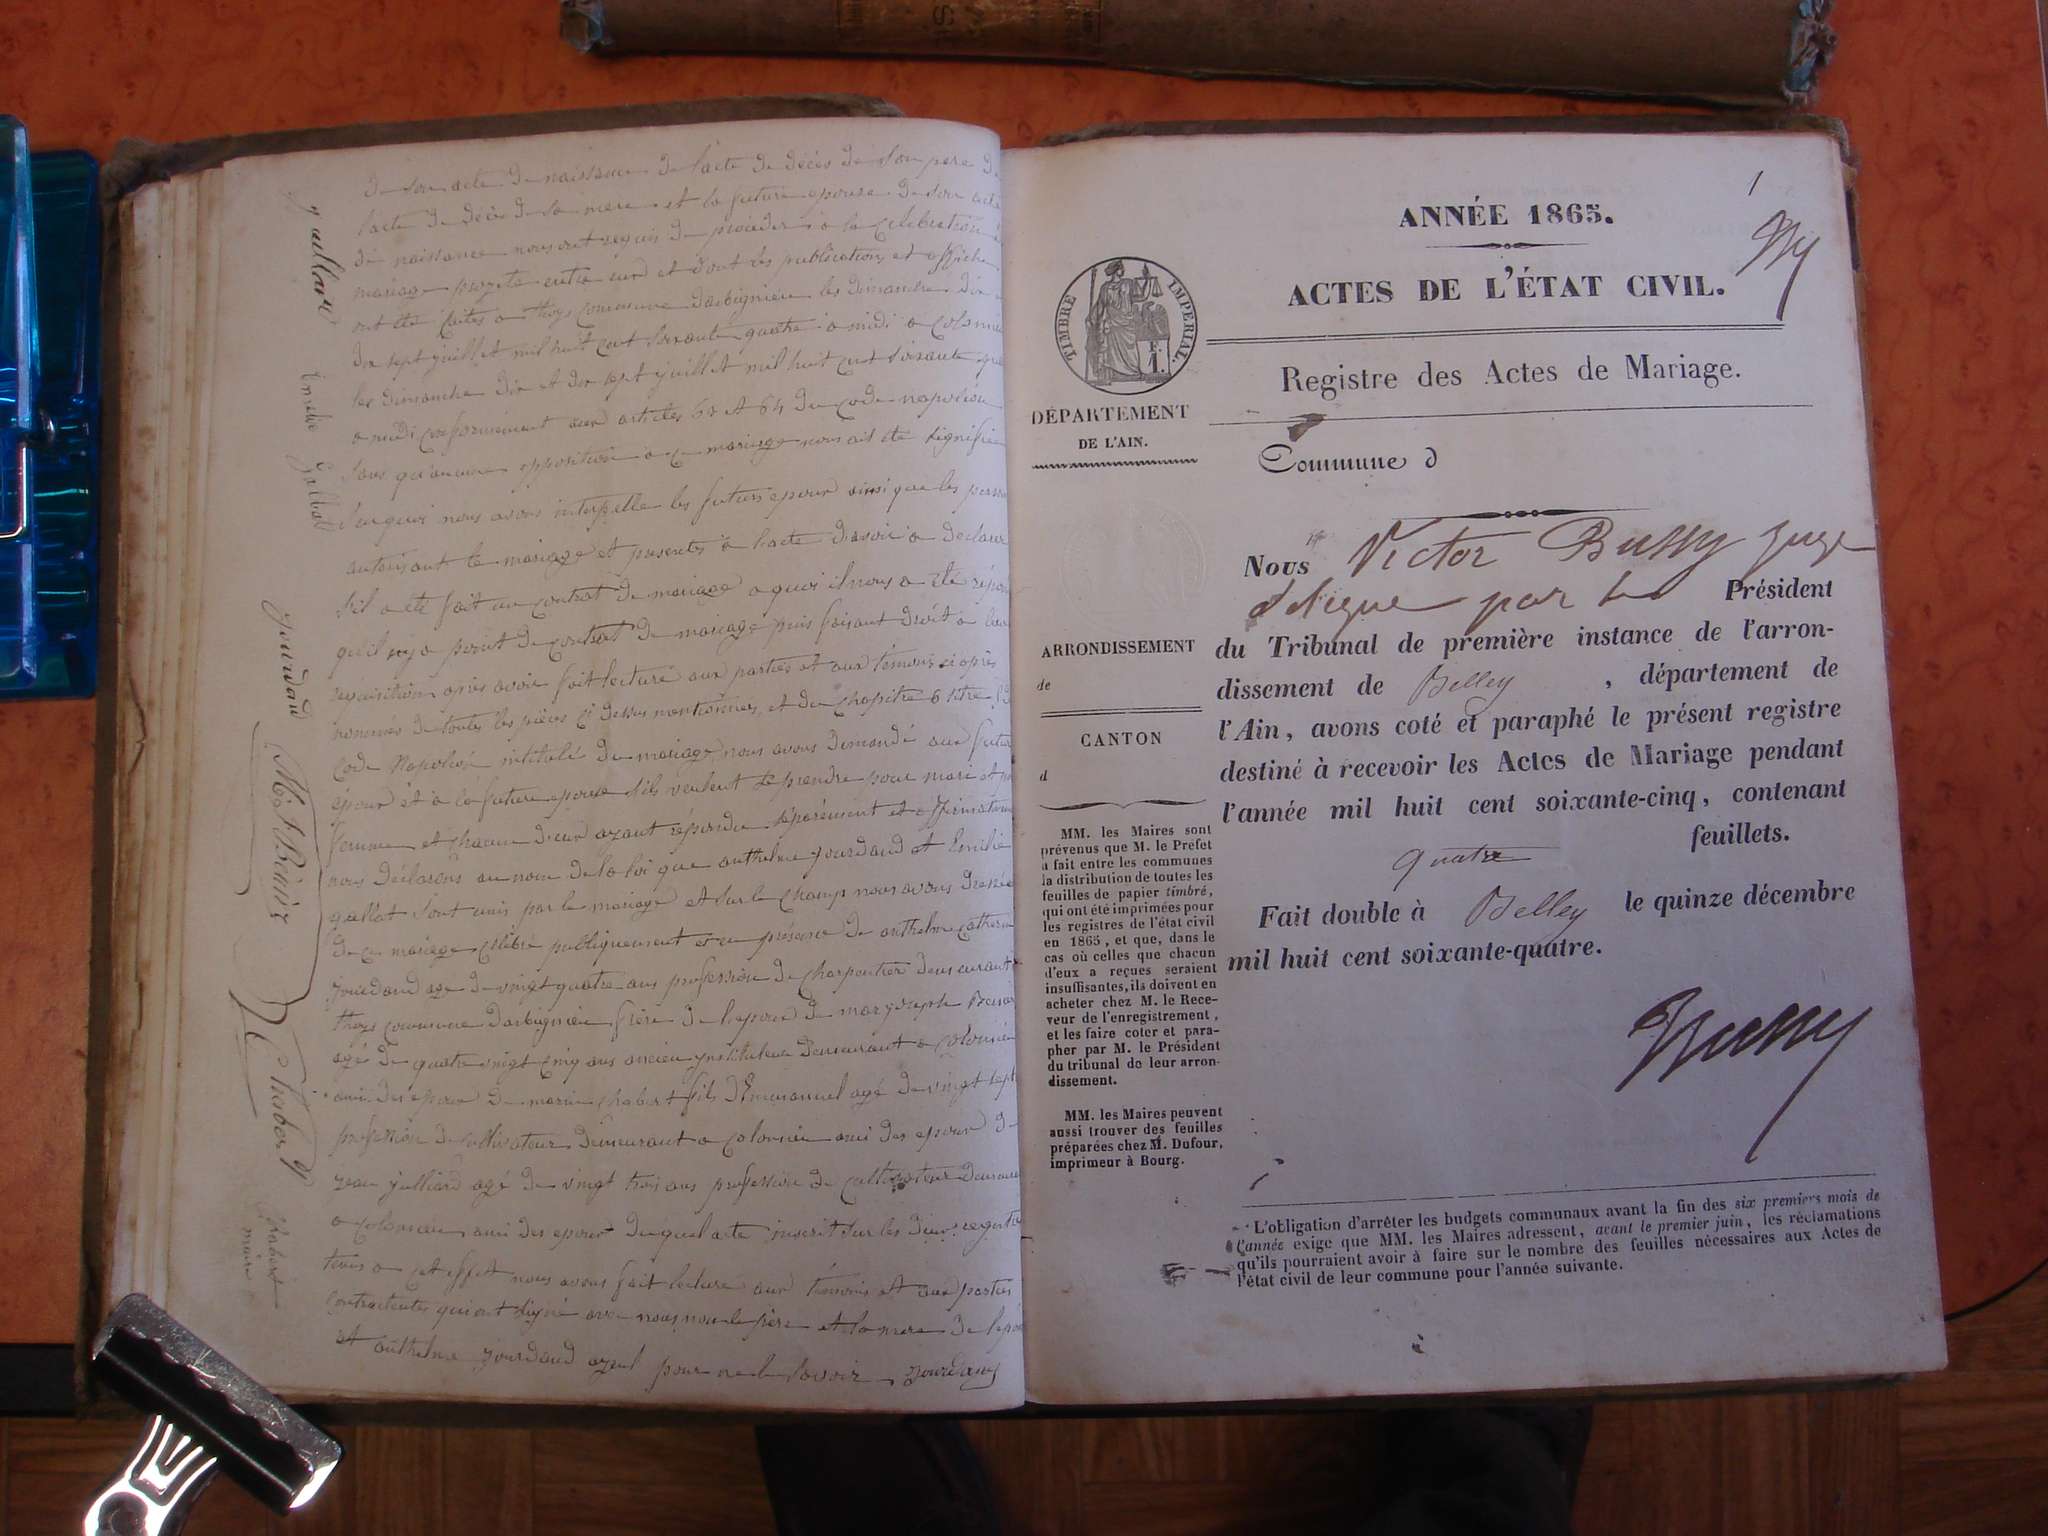 de son acte de naissance de l'acte de décès de son père de
l'acte de décès de sa mere et la future epouse de son acte
de naissance nous ont requis de procéder à la celebration
mariage projeté entre eux et dont les publications et affiche
ont été faites a thoys commune d'arbignieu les dimanche dix
dix sept juillet mil huit cent soixante quatre a midi a colomieu
les dimanche dix et dix sept juillet mil huit cent soixante
a midi conformement aux articles 63 et 64 du code napoléon
sans qu'aucune opposition a ce mariage nous ait été signifiée
nous avons interpelle les futurs epoux ainsi que les
autorisant le mariage et presents à l'acte d'avoir a declarer
s'il a été fait un contrat de mariage a quoi il nous a été
qu'il n'y a point de contrat de mariage puis faisant droit à
requisition après avoir fait lecture aux parties et aux témoins ci après
nommés de toutes les pièces ci dessus mentionnées et du chapitre 6 titre
code Napoléon intitulé du mariage nous avons demandé aux futur
époux et à la future epouse s'ils veulent se prendre pour mari et
femme et chacun d'eux ayant répondu séparément et affirmativem
nous déclarons au nom de la loi que anthelme jourdand et Emilie
gallat sont unis par le mariage et sur le champ nous avons dressé
de ce mariage célébré publiquement et en présence de anthelme
jourdand agé de vingt quatre ans profession de charpentier demeurant
thoys commune d'arbignieu frère de l'epoux de mary joseph
agé de quatre vingt cinq ans ancien ynstituteur demeurant a colomieu
ami des epoux de marin chabert fils d'Emmanuel agé de vingt sept
profession de cultivateur demeurant a colomieu ami des epoux de
jean julliard agé de vingt trois ans profession de cultivateur
a colomieu ami des epoux duquel acte inscrit sur les deux registre
tenus a cet effet nous avons fait lecture aux témoins et aux parties
contractentes qui ont signé avec nous non le père et la mere de
et anthelme jourdand ayeul pour ne le savoir jourdand
julliard
Emelie Gallat
jourdand
M. J. Benoir
Chabert
Chabert
maire
1
ANNÉE 1865.
ACTES DE L'ÉTAT CIVIL.
Registre des Actes de Mariage.
TIMBRE IMPÉRIAL.
F. 1.
DÉPARTEMENT
DE L'AIN.
Commune d
ARRONDISSEMENT
de
CANTON
d
MM. les Maires sont
prévenus que M. le Préfet
a fait entre les communes
la distribution de toutes les
feuilles de papier timbré,
qui ont été imprimées pour
les registres de l'état civil
en 1865, et que, dans le
cas où celles que chacun
d'eux a reçues seraient
insuffisantes, ils doivent en
acheter chez M. le Rece-
veur de l'enregistrement,
et les faire coter et para-
pher par M. le Président
du tribunal de leur arron-
dissement.
MM. les Maires peuvent
aussi trouver des feuilles
préparées chez M. Dufour,
imprimeur à Bourg.
Nous Victor Bussy juge
délégué par le Président
du Tribunal de première instance de l'arron-
dissement de Belley, département de
l'Ain, avons coté et paraphé le présent registre
destiné à recevoir les Actes de Mariage pendant
l'année mil huit cent soixante-cinq, contenant
quatre feuillets.
Fait double à Belley le quinze décembre
mil huit cent soixante-quatre.
Bussy
L'obligation d'arrêter les budgets communaux avant la fin des six premiers mois de
l'année exige que MM. les Maires adressent, avant le premier juin, les réclamations
qu'ils pourraient avoir à faire sur le nombre des feuilles nécessaires aux Actes de
l'état civil de leur commune pour l'année suivante.